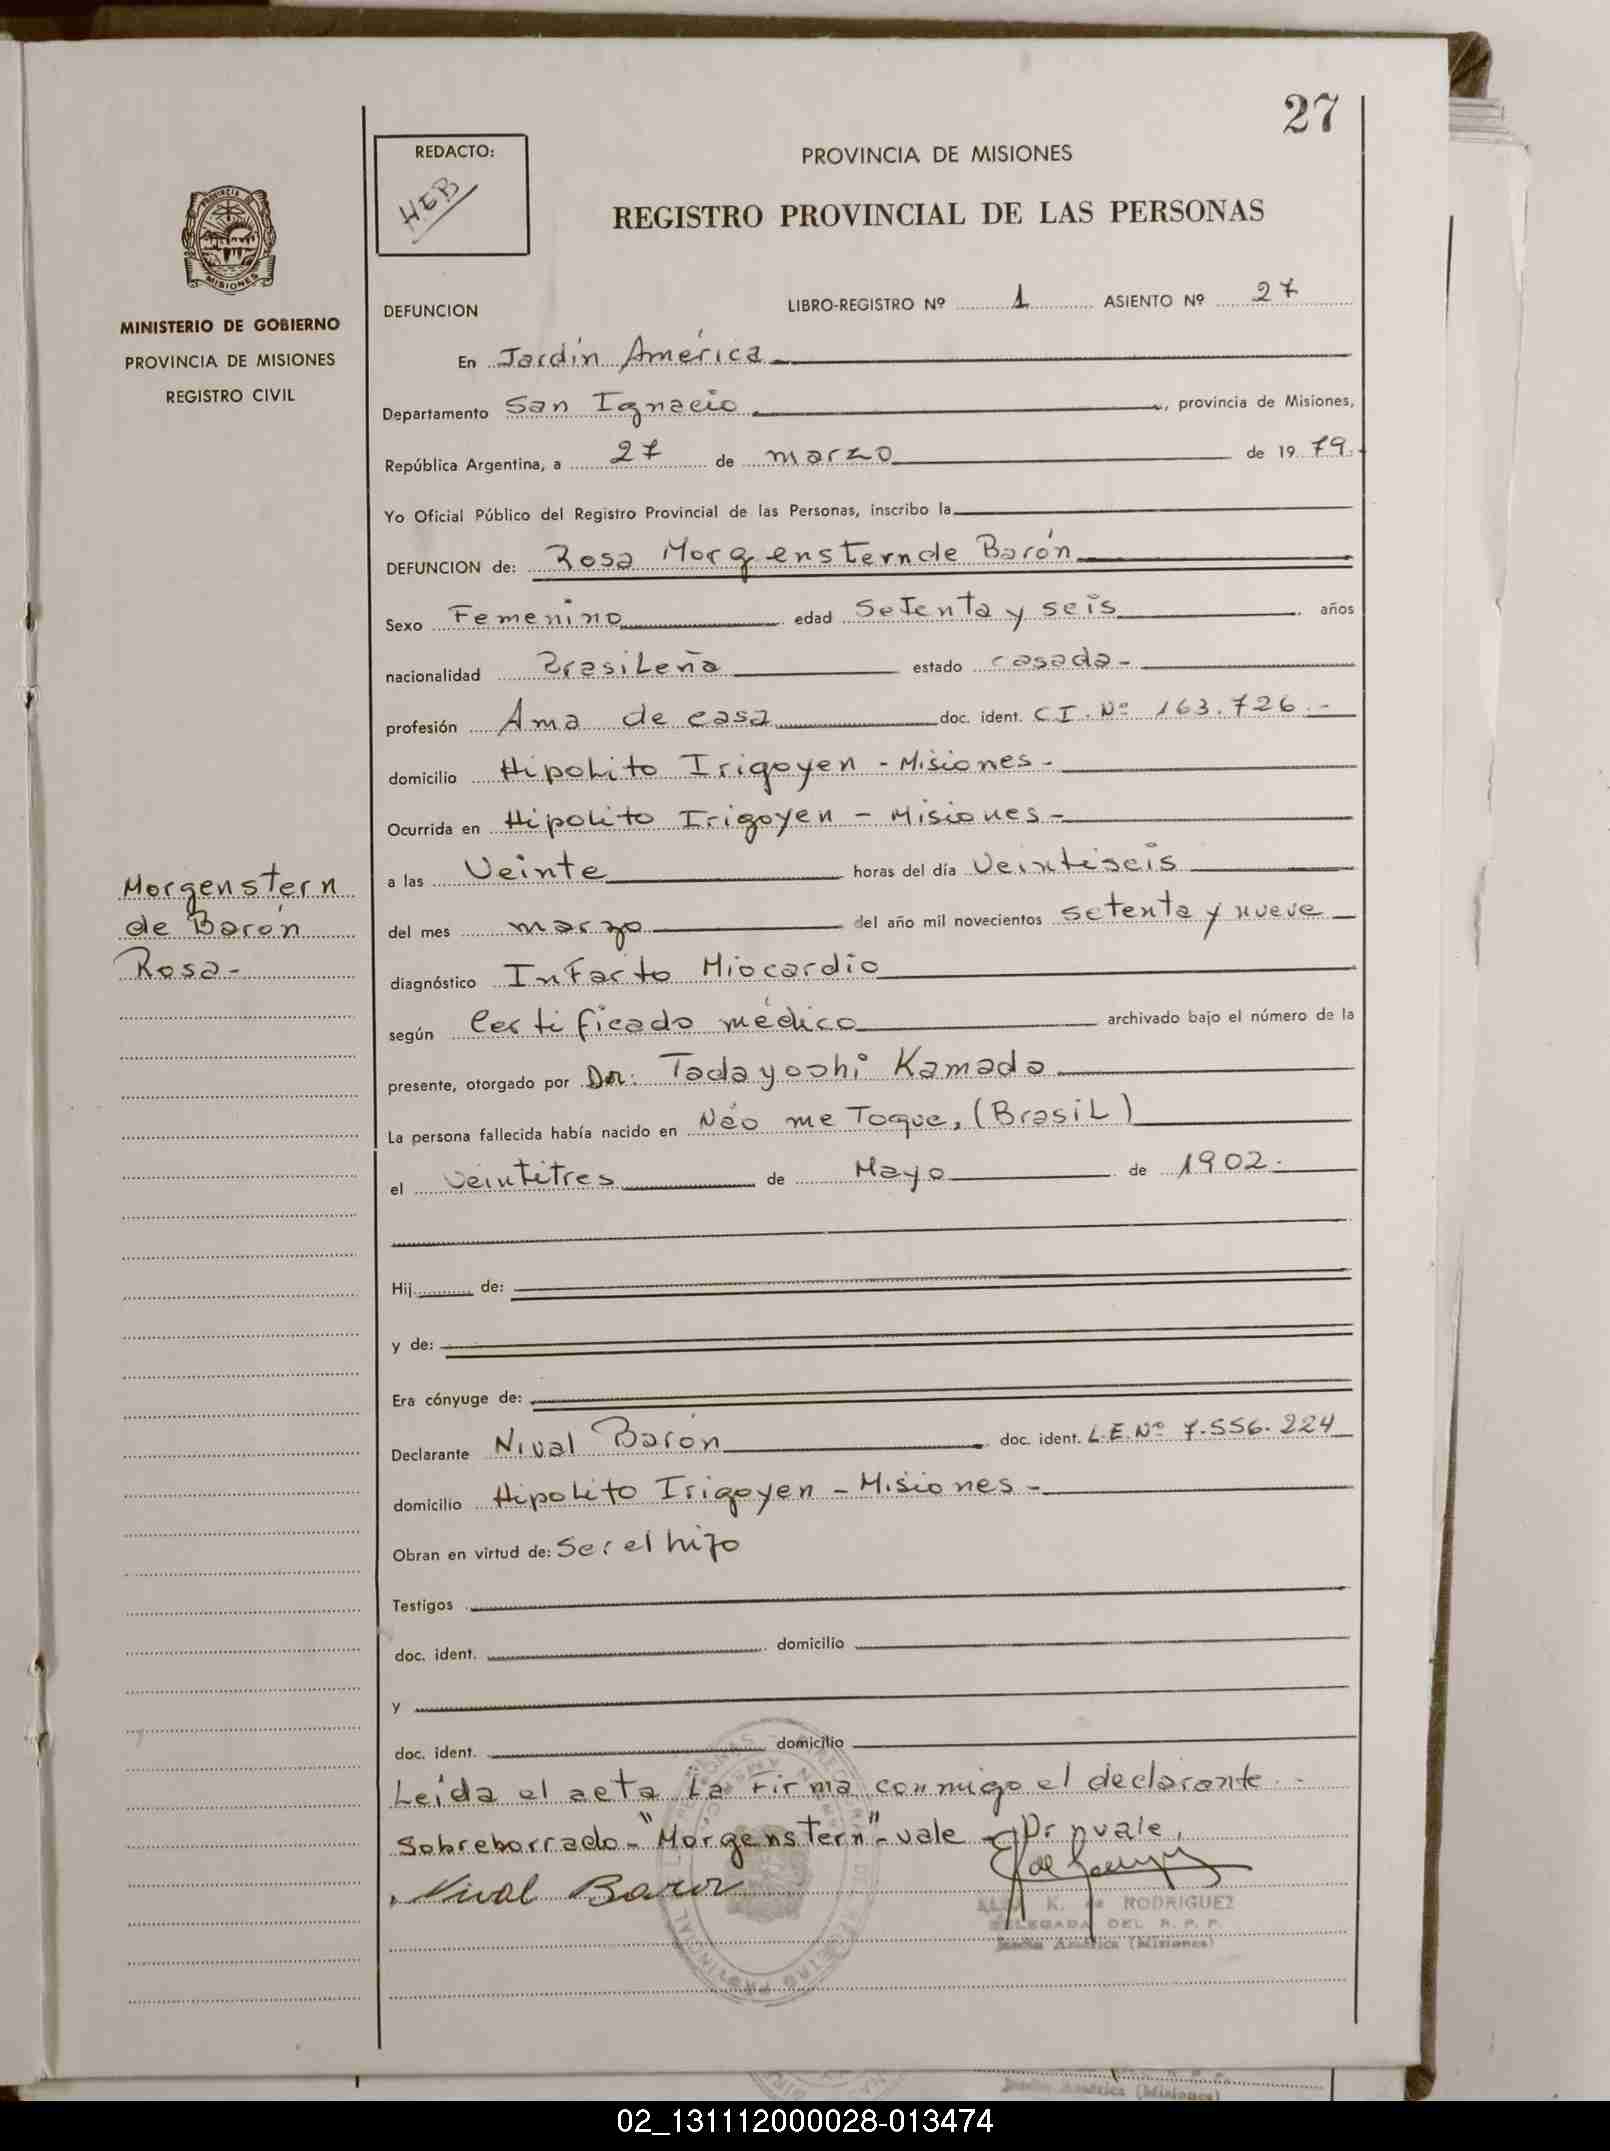 27
REDACTO:
HEB
PROVINCIA DE MISIONES
REGISTRO PROVINCIAL DE LAS PERSONAS
MINISTERIO DE GOBIERNO
PROVINCIA DE MISIONES
REGISTRO CIVIL
DEFUNCION LIBRO-REGISTRO Nº 1 ASIENTO Nº 27
En Jardín América
Departamento San Ignacio, provincia de Misiones,
República Argentina, a 27 de marzo de 1979.
Yo Oficial Público del Registro Provincial de las Personas, inscribo la
DEFUNCION de: Rosa Morgenstern de Barón
Sexo Femenino edad Setenta y seis años
nacionalidad Brasileña estado casada-
profesión Ama de casa doc. ident. C.I. Nº 163.726.-
domicilio Hipolito Irigoyen - Misiones-
Ocurrida en Hipolito Irigoyen - Misiones-
Morgenstern
de Barón
Rosa-
a las Veinte horas del día Veintiseis
del mes marzo del año mil novecientos setenta y nueve
diagnóstico Infarto Miocardio
según Certificado médico archivado bajo el número de la
presente, otorgado por Dr: Tadayoshi Kamada
La persona fallecida había nacido en Não me Toque, (Brasil)
el Veintitres de Mayo de 1902.
Hij de:
y de:
Era cónyuge de:
Declarante Nival Barón doc. ident. L.E. Nº 7.556.224
domicilio Hipolito Irigoyen - Misiones-
Obran en virtud de: Ser el hijo
Testigos
doc. ident. domicilio
y
doc. ident. domicilio
Leída el acta la Firma conmigo el declarante.-
Sobreborrado-"Morgenstern"-vale
Nival Baron
K. de RODRIGUEZ
DELEGADA DEL R. P. P.
Jardín América (Misiones)
Jardín América (Misiones)
02_131112000028-013474